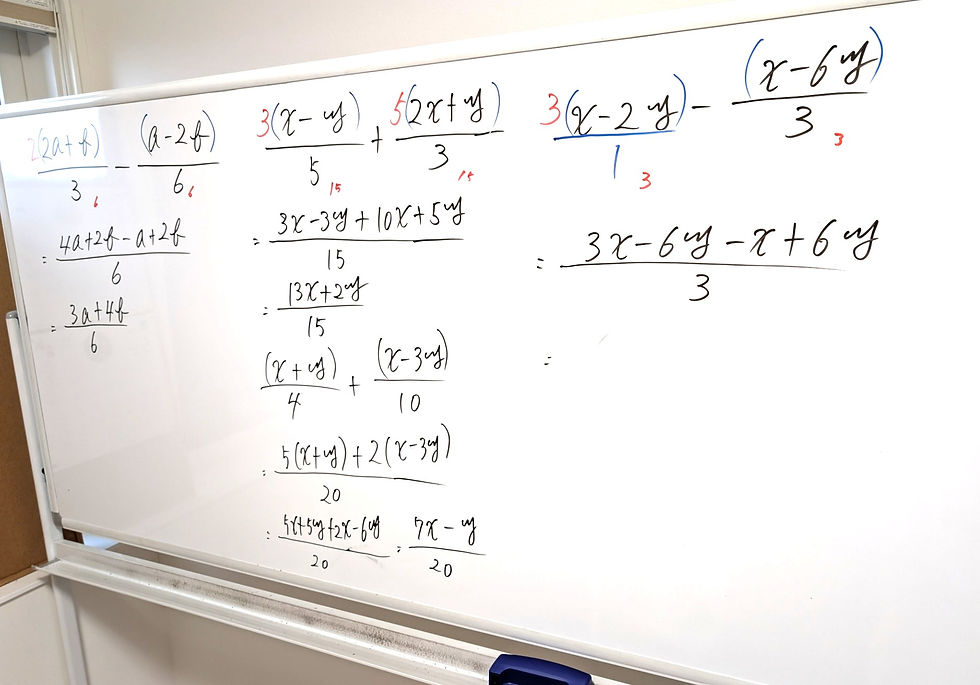 2(2a+b)/3 6 - (a-2b)/6 6
= (4a+2b-a+2b)/6
= (3a+4b)/6
3(x-y)/5 15 + 5(2x+y)/3 15
= (3x-3y+10x+5y)/15
= (13x+2y)/15
(x+y)/4 + (x-3y)/10
= (5(x+y)+2(x-3y))/20
= (5x+5y+2x-6y)/20 = (7x-y)/20
3(x-2y)/1 3 - (x-6y)/3 3
= (3x-6y-x+6y)/3
=